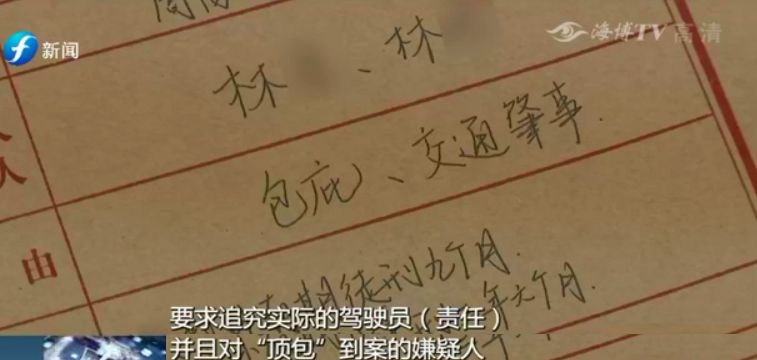 新闻
海博TV高清
林 、林
人
包庇、交通肇事.
由
期徒刑九个月.
年六个月.
要求追究实际的驾驶员（责任）
并且对“顶包”到案的嫌疑人